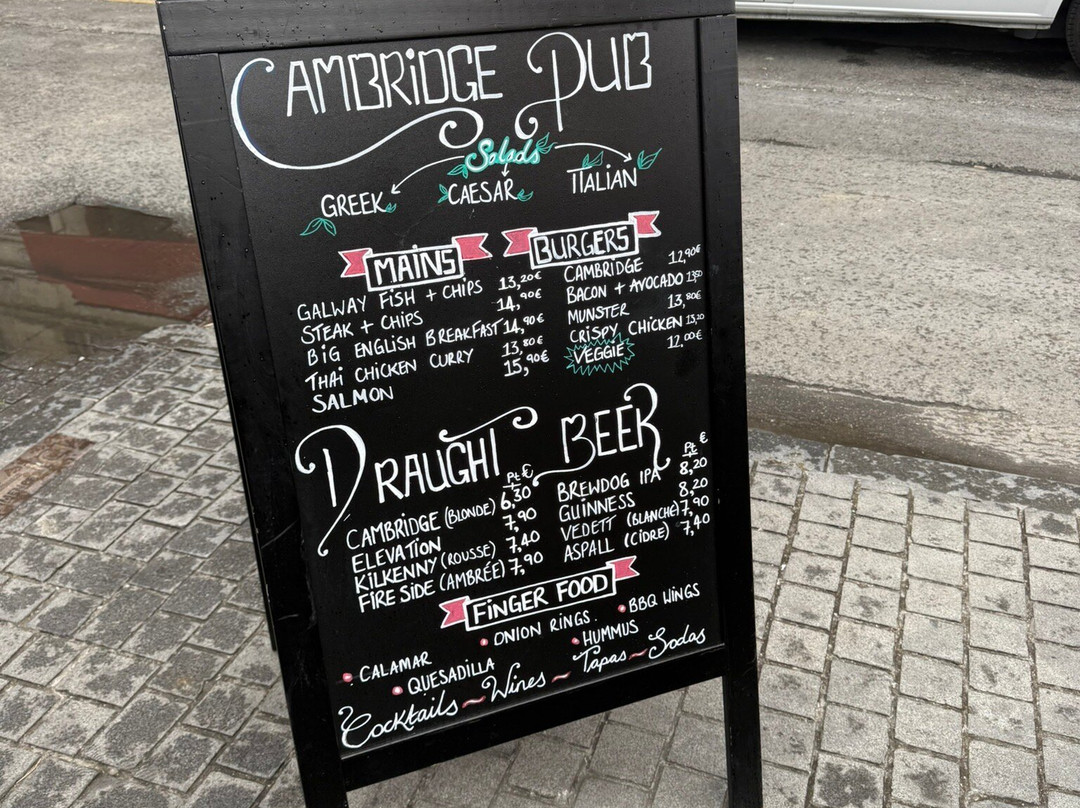 CAMBRIDGE PUB
Salads
GREEK CAESAR ITALIAN
MAINS
GALWAY FISH + CHIPS 13,20€
STEAK + CHIPS 14,90€
BIG ENGLISH BREAKFAST 14,90€
THAI CHICKEN CURRY 13,80€
SALMON 15,90€
BURGERS
CAMBRIDGE 12,90€
BACON + AVOCADO 13,50
MUNSTER 13,80€
CRISPY CHICKEN 13,20
VEGGIE 12,00€
DRAUGHT BEER
Pt €
CAMBRIDGE (BLONDE) 6,30
ELEVATION 7,90
KILKENNY (ROUSSE) 7,40
FIRE SIDE (AMBRÉE) 7,90
Pt €
BREWDOG IPA 8,20
GUINNESS 8,20
VEDETT (BLANCHE) 7,90
ASPALL (CIDRE) 7,40
FINGER FOOD
• ONION RINGS. • BBQ WINGS
• CALAMAR • HUMMUS
• QUESADILLA
Cocktails ~ Wines ~ Tapas ~ Sodas